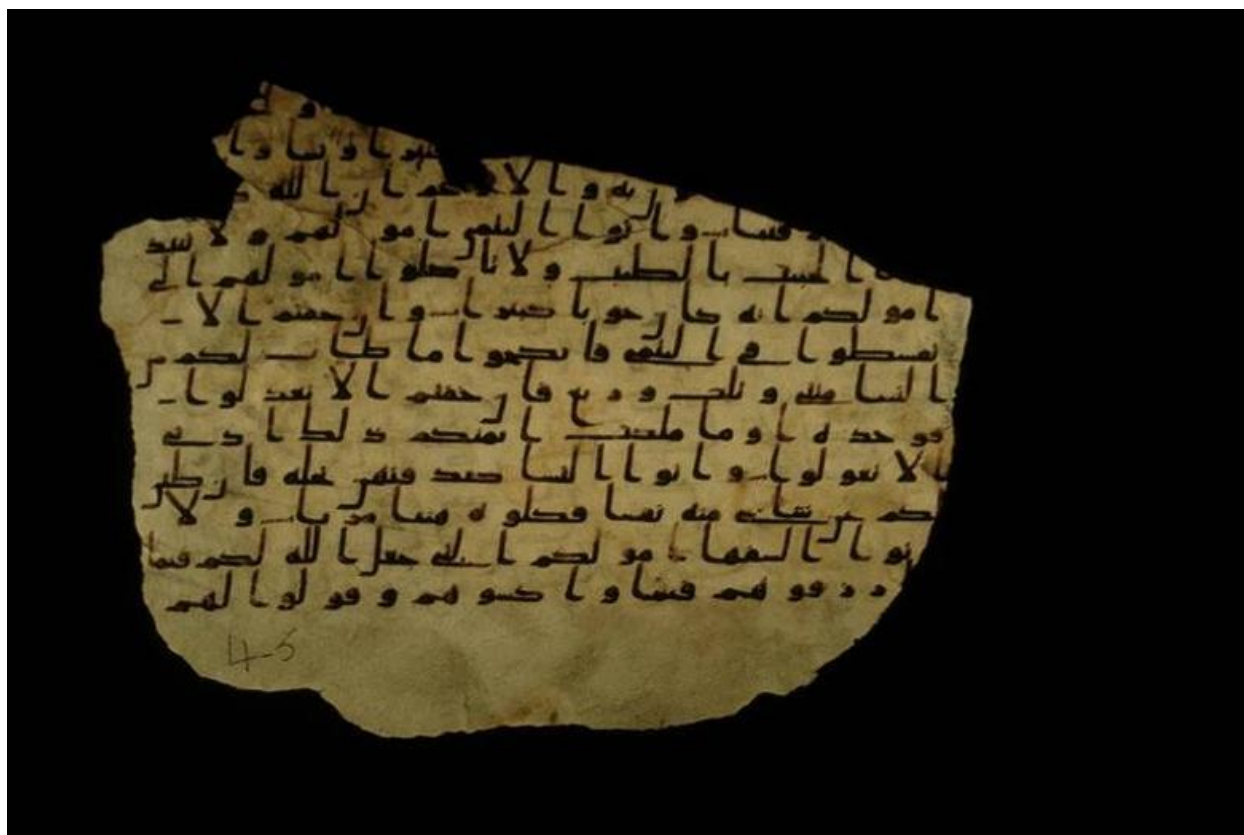 كثيرا ونسا وا
به والارحم ان الله
رقيبا واتوا اليتمى امولهم ولا تتبد
لوا الخبيث بالطيب ولا تاكلوا امولهم الى
امولكم انه كان حوبا كبيرا وان خفتم الا
تقسطوا في اليتمى فانكحوا ما طاب لكم من
النسا مثنى وثلث وربع فان خفتم الا تعدلوا
فوحدة او ما ملكت ايمنكم ذلك ادنى
الا تعولوا واتوا النسا صدقتهن نحلة فان طبن
لكم عن شي منه نفسا فكلوه هنيا مريا ولا
توتوا السفها امولكم التي جعل الله لكم قيما
رزقوهم فيها واكسوهم وقولوا لهم
4-5